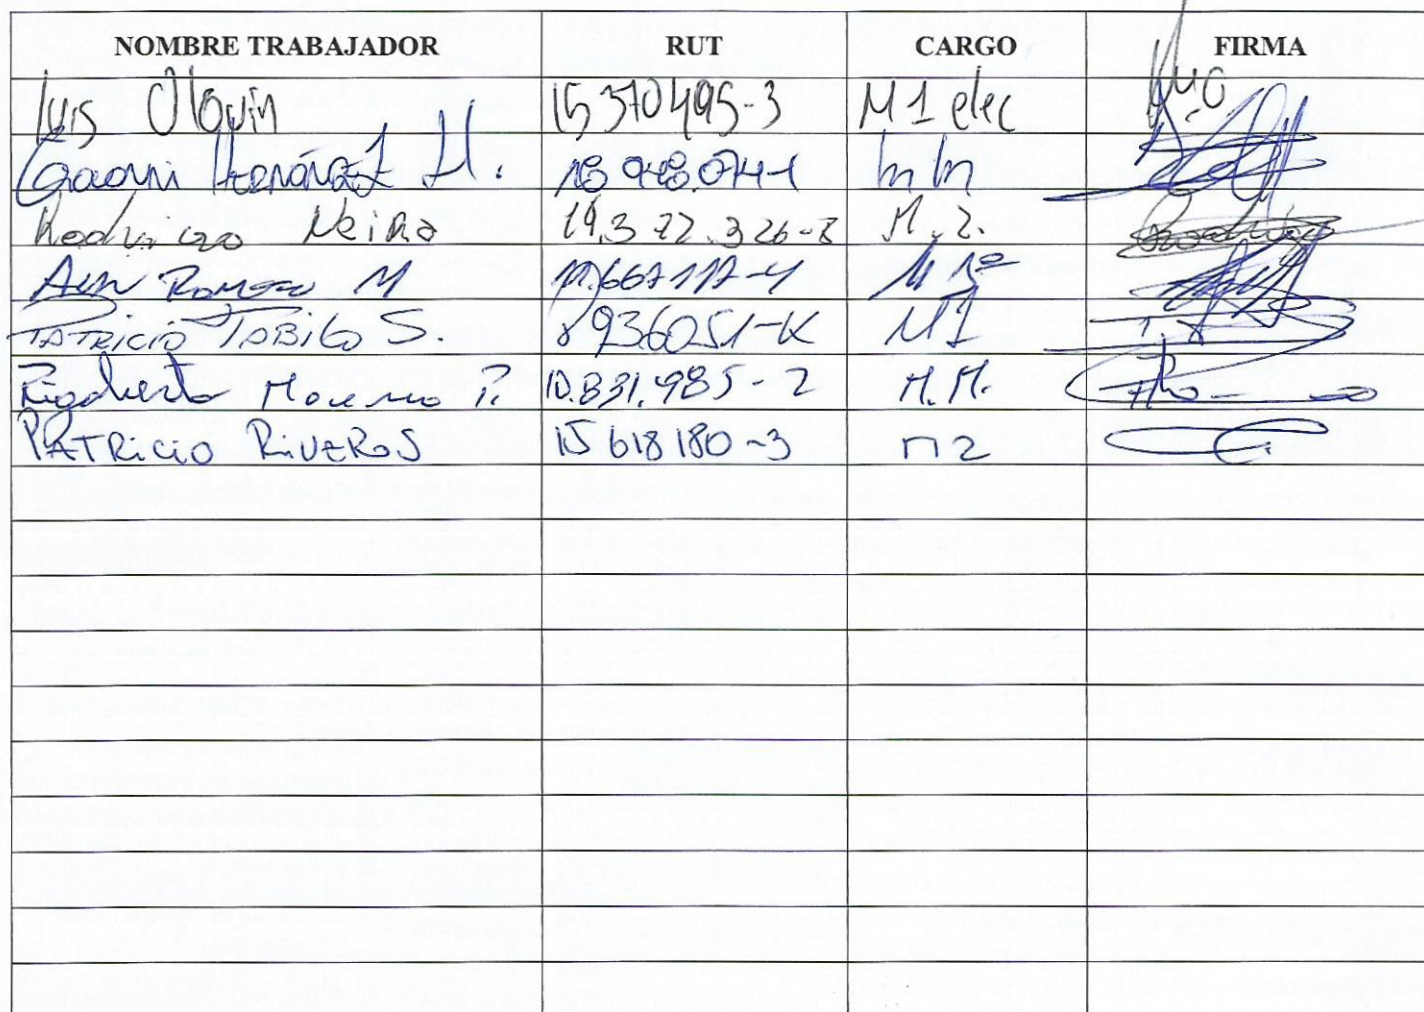 NOMBRE TRABAJADOR RUT CARGO FIRMA
Luis Olguin 15370495-3 M1 elec
Giaonni Hernández H. M M
Neira 19.372.326-8 M.2.
Romero M M1º
PATRICIO TABILO S. 8936051-K M1
Rigoberto Moreno P. 10.831.985-2 M.M.
PATRICIO RIVEROS 15618180-3 M2